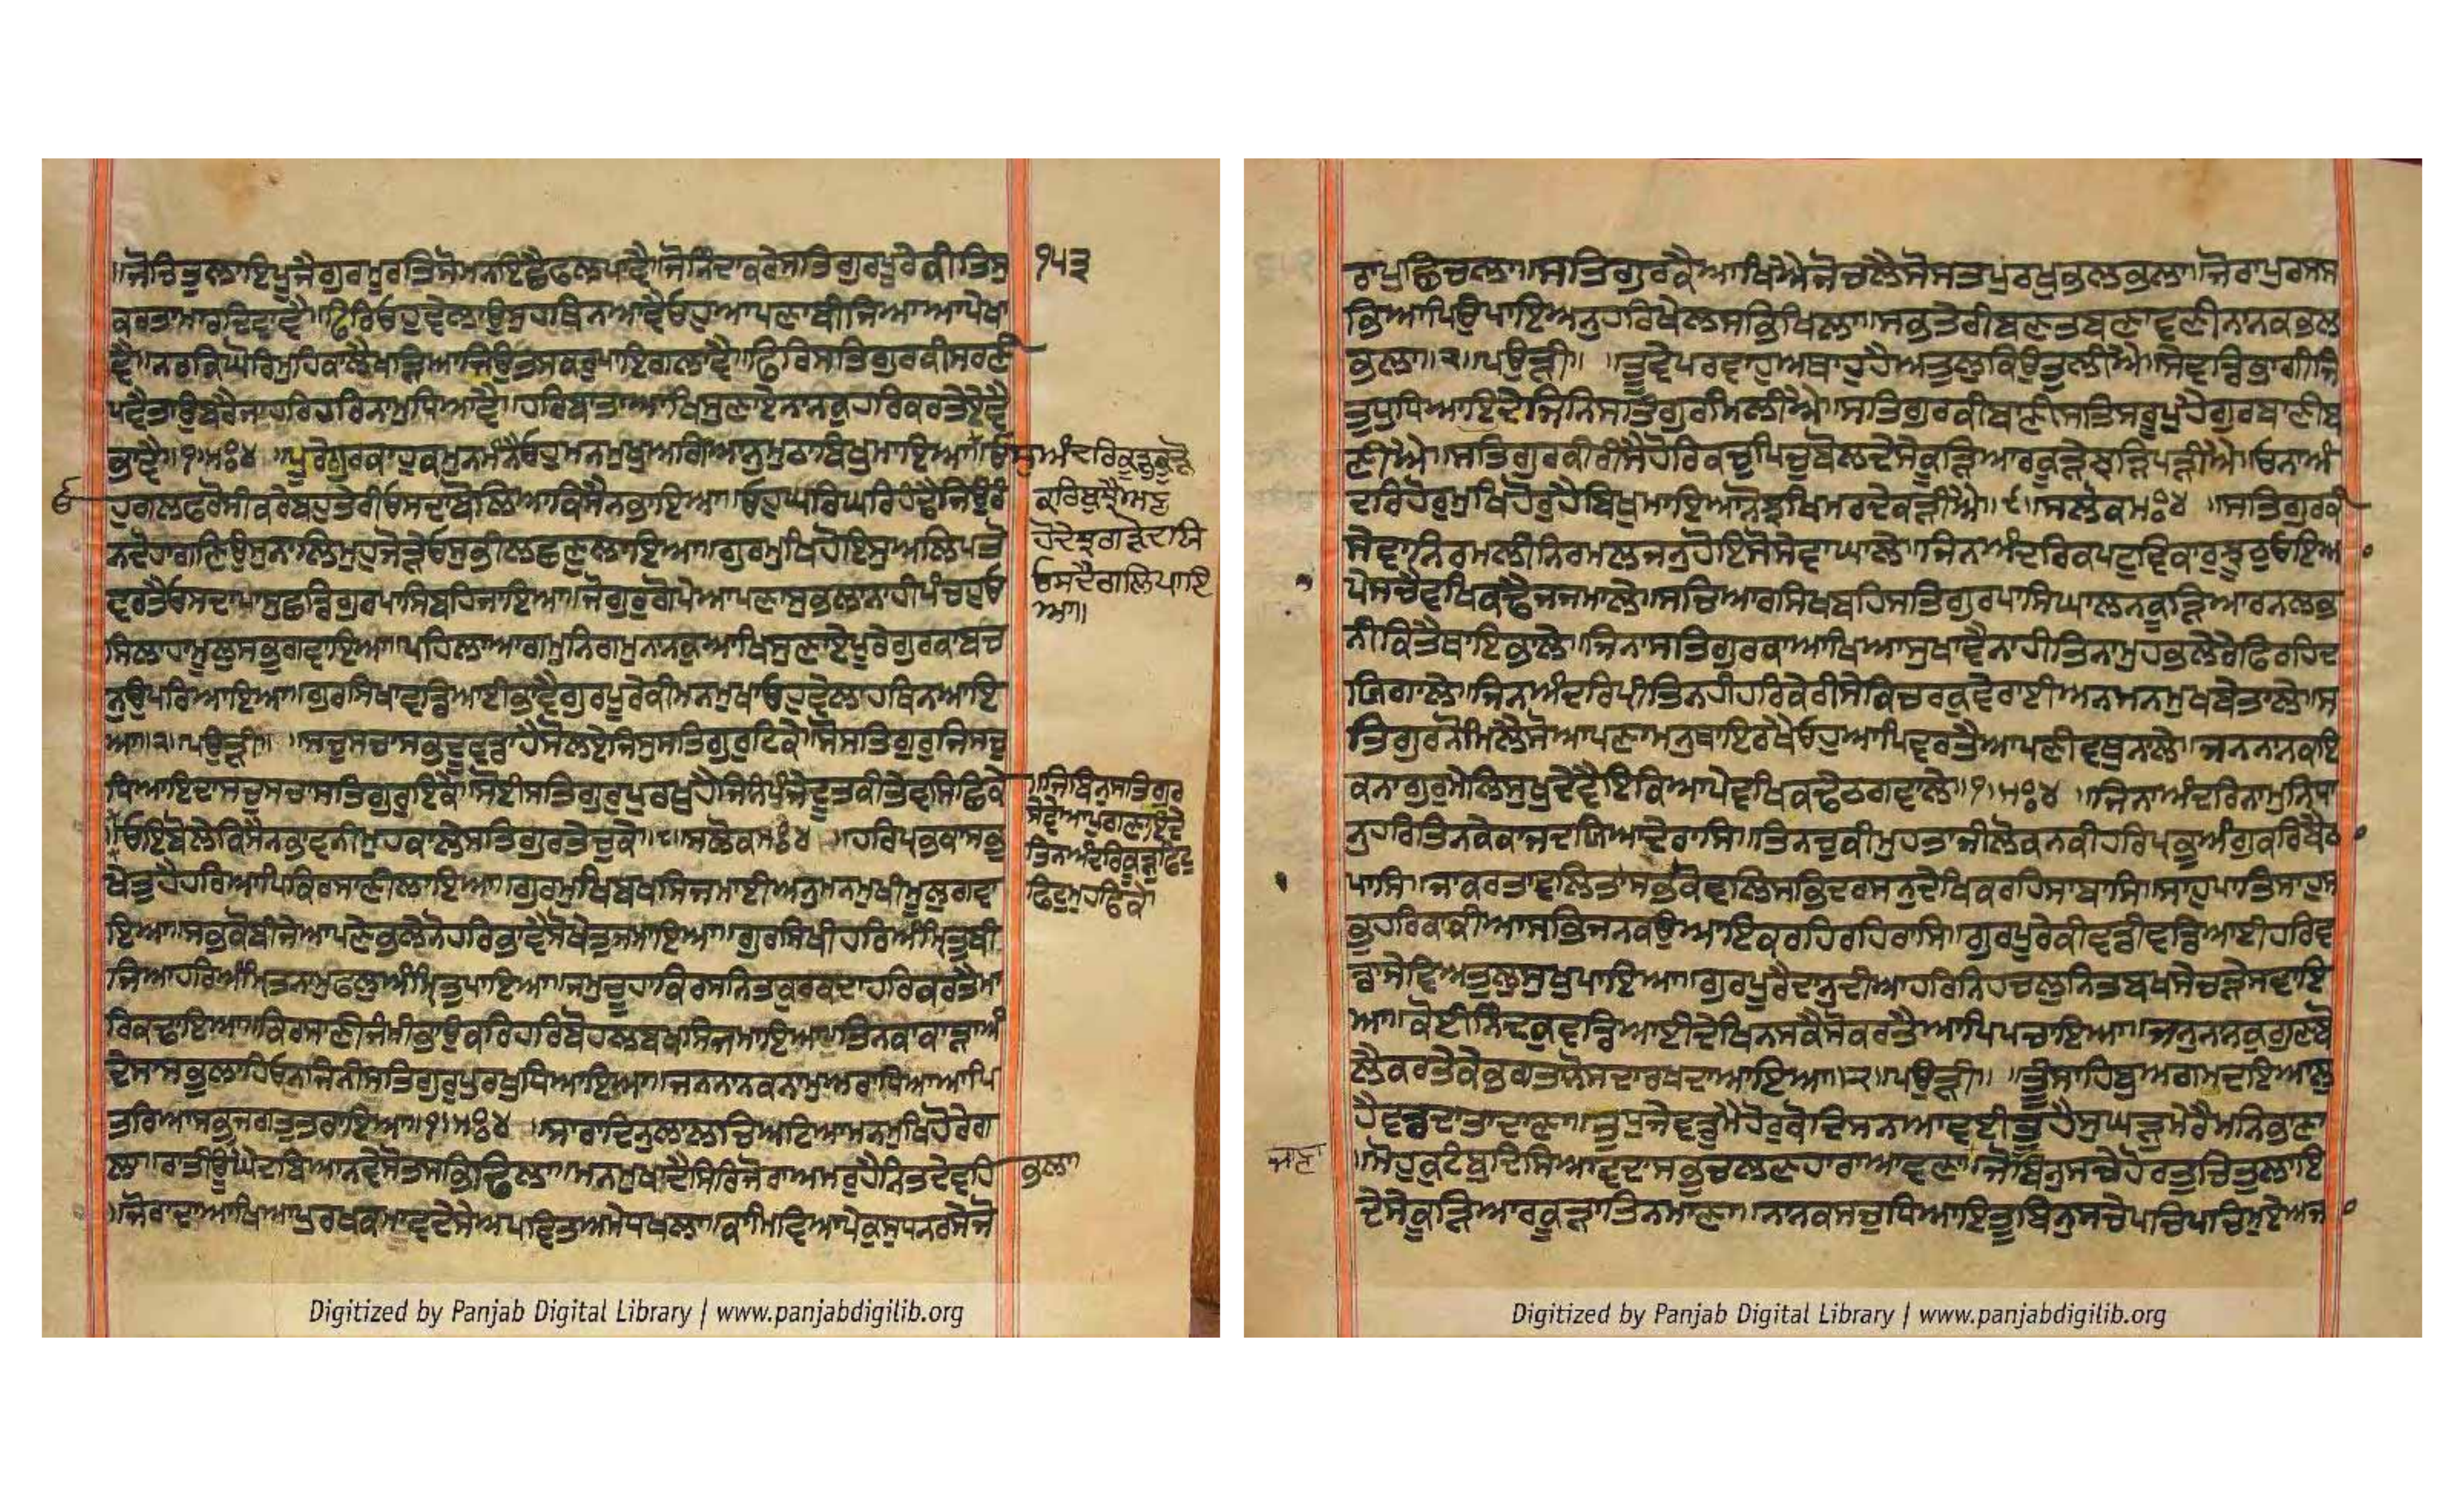 ਜੋਚਿਤੁਲਾਇਪੂਜੈਗੁਰਮੂਰਤਿਸੋਮਨਇਛੈਫਲਪਾਵੈ॥ਜੋਨਿੰਦਾਕਰੇਸਤਿਗੁਰਪੂਰੇਕੀਤਿਸੁ ੧੫੩
ਕਰਤਾਮਾਰਦਿਵਾਵੈ॥ਫਿਰਿਓਹੁਵੇਲਾਉਸੁਹਥਿਨਆਵੈਓਹੁਆਪਣਾਬੀਜਿਆਆਪੇਖਾ
ਵੈ॥ਨਰਕਿਘੋਰਿਮੁਹਿਕਾਲੈਖੜਿਆਜਿਉਤਸਕਰੁਪਾਇਗਲਾਵੈ॥ਫਿਰਿਸਤਿਗੁਰਕੀਸਰਣੀ
ਪਵੈਤਾਉਬਰੈਜਾਹਰਿਹਰਿਨਾਮੁਧਿਆਵੈ॥ਹਰਿਬਾਤਾਆਖਿਸੁਣਾਏਨਾਨਕੁਹਰਿਕਰਤੇਏਵੈ
ਭਾਵੈ॥੧॥ਮਃ੪॥ਪੂਰੇਗੁਰਕਾਹੁਕਮੁਨਮੰਨੈਓਹੁਮਨਮੁਖੁਅਗਿਆਨੁਮੁਠਾਬਿਖੁਮਾਇਆ॥ਓ
ਸੁਅੰਦਰਿਕੂੜੁਕੂੜੋ
ਕਰਿਬੁਝੈਅਣ
ਹੋਦੇਝਗੜੇਦਯਿ
ਓਸਦੈਗਲਿਪਾਇ
ਆ॥
ਹੁਗਲਫਰੋਸੀਕਰੇਬਹੁਤੇਰੀਓਸਦਾਬੋਲਿਆਕਿਸੈਨਭਾਇਆ॥ਓਹੁਘਰਿਘਰਿਹੰਢੈਜਿਉਰੰ
ਨਦੋਹਾਗਣਿਉਸੁਨਾਲਿਮੁਹੁਜੋੜੇਓਸੁਭੀਲਛਣੁਲਾਇਆ॥ਗੁਰਮੁਖਿਹੋਇਸੁਅਲਿਪਤੋ
ਵਰਤੈਓਸਦਾਪਾਸੁਛਡਿਗੁਰਪਾਸਿਬਹਿਜਾਇਆ॥ਜੋਗੁਰੁਗੋਪੇਆਪਣਾਸੁਭਲਾਨਾਹੀਪੰਚਹੁਓ
ਨਿਲਾਹਾਮੂਲੁਸਭੁਗਵਾਇਆ॥ਪਹਿਲਾਆਗਮੁਨਿਗਮੁਨਾਨਕੁਆਖਿਸੁਣਾਏਪੂਰੇਗੁਰਕਾਬਚ
ਨੁਉਪਰਿਆਇਆ॥ਗੁਰਸਿਖਾਵਡਿਆਈਭਾਵੈਗੁਰਪੂਰੇਕੀਮਨਮੁਖਾਓਹੁਵੇਲਾਹਥਿਨਆਇ
ਆ॥੨॥ਪਉੜੀ॥ਸਚੁਸਚਾਸਭਦੂਵਡਾਹੈਸੋਲਏਜਿਸੁਸਤਿਗੁਰੁਟਿਕੇ॥ਸੋਸਤਿਗੁਰੁਜਿਸਚੁ
ਧਿਆਇਦਾਸਚੁਸਚਾਸਤਿਗੁਰੁਇਕੇ॥ਸੋਈਸਤਿਗੁਰੁਪੁਰਖੁਹੈਜਿਨਿਪੰਜੇਦੂਤਕੀਤੇਵਸਿਛਿਕੇ
॥ਜਿਬਿਨੁਸਤਿਗੁਰ
ਸੇਵੇਆਪੁਗਣਾਇਦੇ
ਤਿਨਅੰਦਰਿਕੂੜੁਫਿਟੁ
ਫਿਟੁਮੁਹਫਿਕੇ
॥ਓਇਬੋਲੇਕਿਸੈਨਭਾਵਨੀਮੁਹਕਾਲੇਸਤਿਗੁਰਤੇਚੁਕੇ॥੮॥ਸਲੋਕਮਃ੪॥ਹਰਿਪ੍ਰਭਕਾਸਭੁ
ਖੇਤੁਹੈਹਰਿਆਪਿਕਿਰਸਾਣੀਲਾਇਆ॥ਗੁਰਮੁਖਿਬਖਸਿਜਮਾਈਅਨੁਮਨਮੁਖੀਮੂਲੁਗਵਾ
ਇਆ॥ਸਭੁਕੋਬੀਜੇਆਪਣੇਭਲੇਨੋਹਰਿਭਾਵੈਸੋਖੇਤੁਜਮਾਇਆ॥ਗੁਰਸਿਖੀਹਰਿਅੰਮ੍ਰਿਤੁਬੀ
ਜਿਆਹਰਿਅੰਮ੍ਰਿਤਨਾਮੁਫਲੁਅੰਮ੍ਰਿਤੁਪਾਇਆ॥ਜਮੁਚੂਹਾਕਿਰਸਨਿਤਕੁਰਕਦਾਹਰਿਕਰਤੈਮਾ
ਰਿਕਢਾਇਆ॥ਕਿਰਸਾਣੀਜੰਮੀਭਾਉਕਰਿਹਰਿਬੋਹਲਬਖਸਿਜਮਾਇਆ॥ਤਿਨਕਾਕਾੜਾਅੰ
ਦੇਸਾਸਭੁਲਾਹਿਓਨੁਜਿਨੀਸਤਿਗੁਰੁਪੁਰਖੁਧਿਆਇਆ॥ਜਨਨਾਨਕਨਾਮੁਅਰਾਧਿਆਆਪਿ
ਤਰਿਆਸਭੁਜਗਤੁਤਰਾਇਆ॥੧॥ਮਃ੪॥ਸਾਰਾਦਿਨੁਲਾਲਚਿਅਟਿਆਮਨਮੁਖਿਹੋਰੇਗ
ਲਾ॥ਰਾਤੀਊਘੈਦਬਿਆਨਵੇਸੋਤਸਭਿਢਿਲਾ॥ਮਨਮੁਖਾਦੈਸਿਰਿਜੋਰਾਅਮਰੁਹੈਨਿਤਦੇਵਹਿ ਭਲਾ
॥ਜੋਰਾਦਾਆਖਿਆਪੁਰਖਕਮਾਵਦੇਸੇਅਪਵਿਤਅਮੇਧਖਲਾ॥ਕਾਮਿਵਿਆਪੇਕੁਸੁਧਨਰਸੇਜੋ
ਰਾਪੁਛਿਚਲਾ॥ਸਤਿਗੁਰਕੈਆਖਿਐਜੋਚਲੈਸੋਸਤਪੁਰਖੁਭਲਭਲਾ॥ਜੋਰਾਪੁਰਸਸ
ਭਿਆਪਿਉਪਾਇਅਨੁਹਰਿਖੇਲਸਭਿਖਿਲਾ॥ਸਭਤੇਰੀਬਣਤਬਣਾਵਣੀਨਾਨਕਭਲ
ਭਲਾ॥੨॥ਪਉੜੀ॥ਤੂਵੇਪਰਵਾਹੁਅਥਾਹੁਹੈਅਤੁਲੁਕਿਉਤੁਲੀਐ॥ਸੇਵਡਭਾਗੀਜਿ
ਤੁਧੁਧਿਆਇਦੇਜਿਨਿਸਤਿਗੁਰੁਮਿਲੀਐ॥ਸਤਿਗੁਰਕੀਬਾਣੀਸਤਿਸਰੂਪੁਹੈਗੁਰਬਾਣੀਬ
ਣੀਐ॥ਸਤਿਗੁਰਕੀਰੀਸੈਹੋਰਿਕਚੁਪਿਚੁਬੋਲਦੇਸੇਕੂੜਿਆਰਕੂੜੇਝੜਿਪੜੀਐ॥ਓਨਾਅੰ
ਦਰਿਹੋਰੁਮੁਖਿਹੋਰੁਹੈਬਿਖੁਮਾਇਆਨੋਝਖਿਮਰਦੇਕੜੀਐ॥੯॥ਸਲੋਕਮਃ੪॥ਸਤਿਗੁਰਕੀ
ਸੇਵਾਨਿਰਮਲੀਨਿਰਮਲਜਨੁਹੋਇਸੋਸੇਵਾਘਾਲੇ॥ਜਿਨਅੰਦਰਿਕਪਟੁਵਿਕਾਰੁਝੂਠੁਓਇਆ
ਪੇਸਚੈਵਖਿਕਢੇਜਜਮਾਲੇ॥ਸਚਿਆਰਸਿਖਬਹਿਸਤਿਗੁਰਪਾਸਿਘਾਲਨਕੂੜਿਆਰਨਲਭ
ਨੀਕਿਤੈਥਾਇਭਾਲੇ॥ਜਿਨਾਸਤਿਗੁਰਕਾਆਖਿਆਸੁਖਾਵੈਨਾਹੀਤਿਨਾਮੁਹਭਲੇਰੇਫਿਰਹਿਦ
ਯਿਗਾਲੇ॥ਜਿਨਅੰਦਰਿਪ੍ਰੀਤਿਨਹੀਹਰਿਕੇਰੀਸੇਕਿਚਰਕੁਵੇਰਾਈਅਨਮਨਮੁਖਬੇਤਾਲੇ॥ਸ
ਤਿਗੁਰਨੋਮਿਲੈਸੋਆਪਣਾਮਨੁਥਾਇਰਖੈਓਹੁਆਪਿਵਰਤੈਆਪਣੀਵਥੁਨਾਲੇ॥ਜਨਨਾਨਕਇ
ਕਨਾਗੁਰੁਮੇਲਿਸੁਖੁਦੇਵੈਇਕਿਆਪੇਵਖਿਕਢੈਠਗਵਾਲੇ॥੧॥ਮਃ੪॥ਜਿਨਾਅੰਦਰਿਨਾਮੁਨਿਧਾ
ਨੁਹਰਿਤਿਨਕੇਕਾਜਦਯਿਆਦੇਰਾਸਿ॥ਤਿਨਚੁਕੀਮੁਹਤਾਜੀਲੋਕਨਕੀਹਰਿਪ੍ਰਭੁਅੰਗੁਕਰਿਬੈਠਾ
ਪਾਸਿ॥ਜਾਂਕਰਤਾਵਲਿਤਾਸਭੁਕੋਵਲਿਸਭਿਦਰਸਨੁਦੇਖਿਕਰਹਿਸਾਬਾਸਿ॥ਸਾਹੁਪਾਤਿਸਾਹੁਸ
ਭੁਹਰਿਕਾਕੀਆਸਭਿਜਨਕਉਆਇਕਰਹਿਰਹਿਰਾਸਿ॥ਗੁਰਪੂਰੇਕੀਵਡੀਵਡਿਆਈਹਰਿਵ
ਡਾਸੇਵਿਅਤੁਲੁਸੁਖੁਪਾਇਆ॥ਗੁਰਪੂਰੈਦਾਨੁਦੀਆਹਰਿਨਿਹਚਲੁਨਿਤਬਖਸੇਚੜੈਸਵਾਇ
ਆ॥ਕੋਈਨਿੰਦਕੁਵਡਿਆਈਦੇਖਿਨਸਕੈਸੋਕਰਤੈਆਪਿਪਚਾਇਆ॥ਜਨੁਨਾਨਕੁਗੁਣਬੋ
ਲੈਕਰਤੇਕੇਭਗਤਾਨੋਸਦਾਰਖਦਾਆਇਆ॥੨॥ਪਉੜੀ॥ਤੂਸਾਹਿਬੁਅਗਮਦਇਆਲੁ
ਹੈਵਡਦਾਤਾਦਾਣਾ॥ਤੁਧੁਜੇਵਡੁਮੈਹੋਰੁਕੋਦਿਸਨਾਆਵਈਤੂਹੈਸੁਘੜੁਮੇਰੈਮਨਿਭਾਣਾ
॥ਮੋਹੁਕੁਟੰਬੁਦਿਸਿਆਵਦਾਸਭੁਚਲਣਹਾਰਾਆਵਣ॥ਜੋਬਿਨੁਸਚੇਹੋਰਤੁਚਿਤੁਲਾਇ ਜਾਣਾ
ਦੇਸੇਕੂੜਿਆਰਕੂੜਾਤਿਨਮਾਣਾ॥ਨਾਨਕਸਚੁਧਿਆਇਤੂਬਿਨੁਸਚੇਪਚਿਪਚਿਮੁਏਅਜ
Digitized by Panjab Digital Library | www.panjabdigilib.org
Digitized by Panjab Digital Library | www.panjabdigilib.org